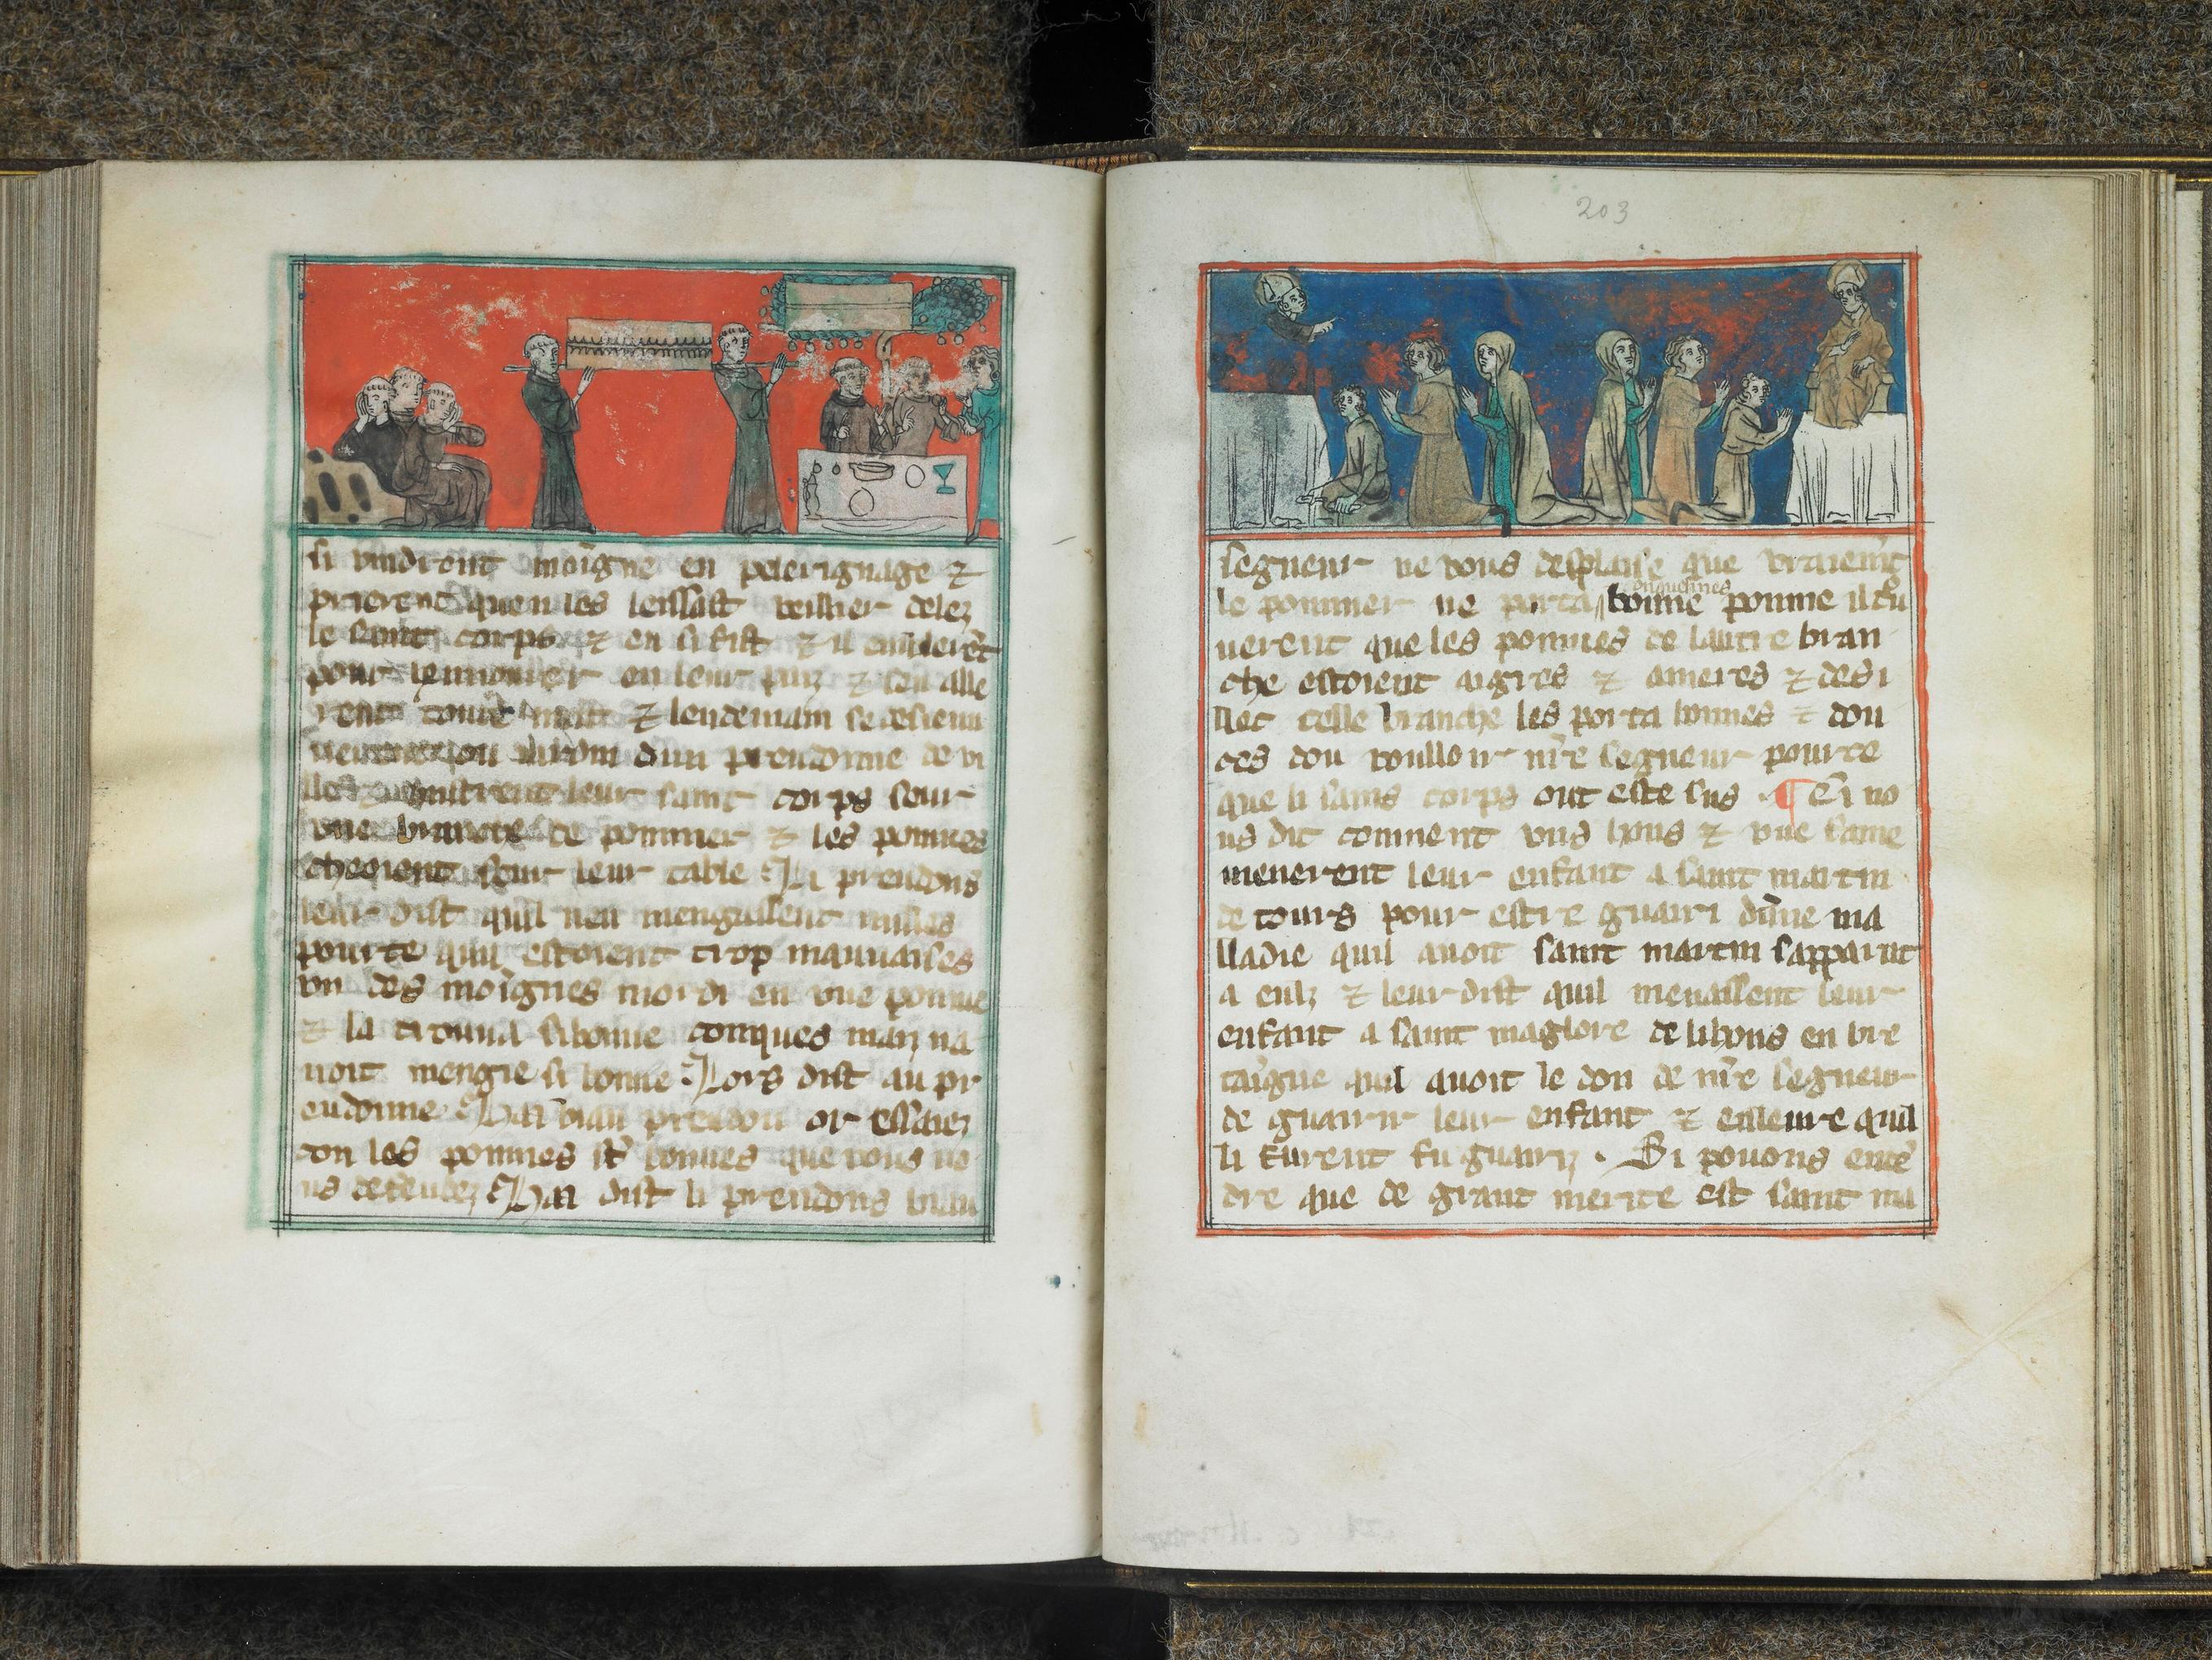 si vindrent moigne en pelerignage ⁊
prierent quen les leissast veillier delez
le saint corps ⁊ en si fist ⁊ il
pour en leur ⁊ sen alle
rent toute nuit ⁊ lendemain se
dun preudome de vi
leur saint corps seur
vne branche de pommier ⁊ les pommes
cheoient seur leur table Li preudons
leur dist quil nen menguissent nulles
pource quil estoient trop mauuaises
vn des moignes mordi en vne pomme
⁊ la trouua si bonne conques mais na
uoit mengie si bonne Lors dist au pr
eudome Hai biau preudon or essaiez
con les pommes st bonnes que vous no
us defendez Hai dist li preudons biau
203
segneur ne vous desplaise que vraiemt
le pommier ne porta onquesmes bonne pomme il tru
uerent que les pommes de lautre bran
che estoient aigres ⁊ ameres ⁊ des i
llec celle branche les porta bonnes ⁊ dou
ces dou voulloir nre segneur pource
que li sains corps ont este sus . ¶ Ci no
us dit comment vns hons ⁊ vne fame
menerent leur enfant a saint martin
de tours pour estre guairi dune ma
lladie quil auoit saint martin sapparut
a eulz ⁊ leur dist quil menassent leur
enfant a saint maglore de lihons en bre
taigne quil auoit le don de nre segneur
de guairir leur enfant ⁊ enleure quil
li furent fu guariz . Si pouons ente
dre que de grant merite est saint ma